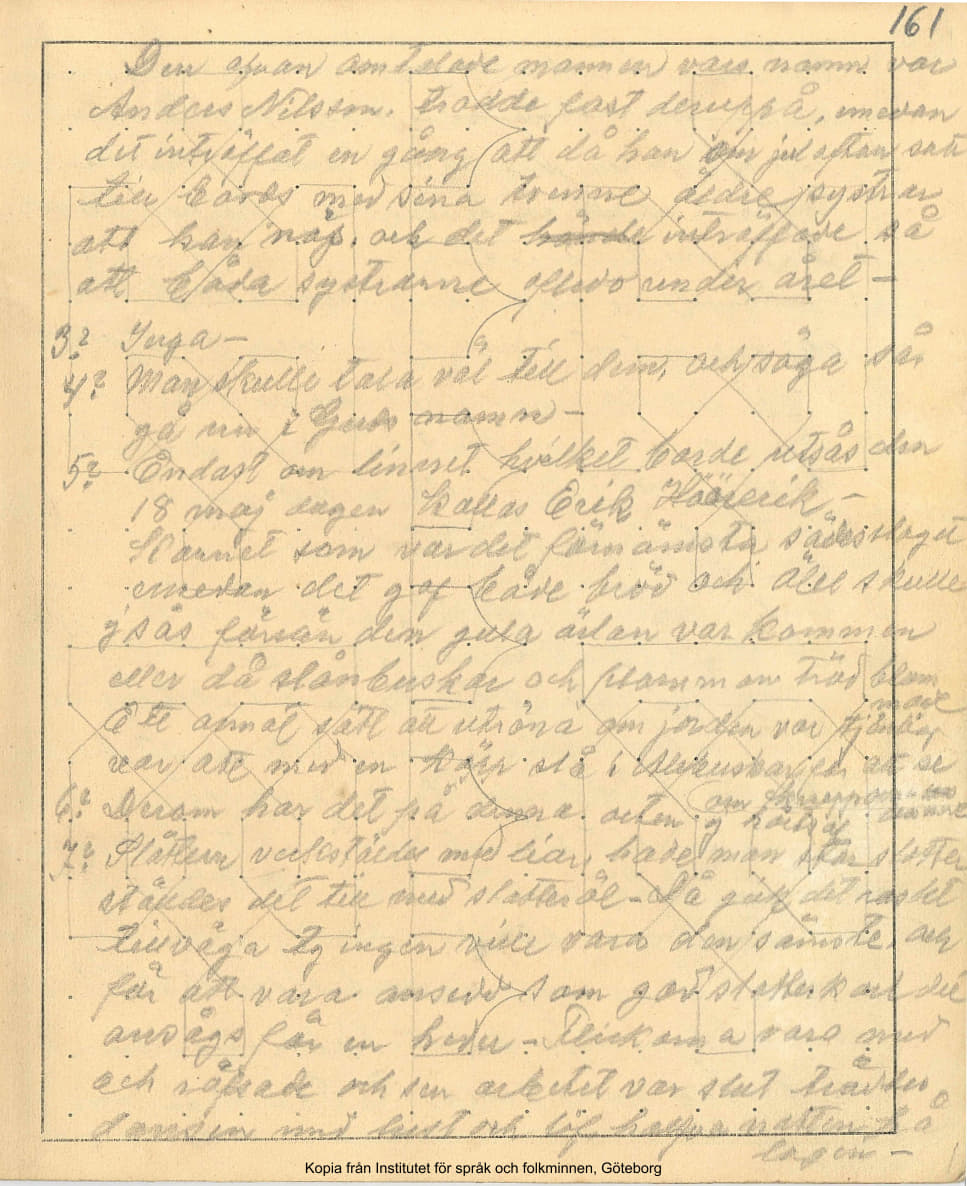 161
Den ofvan omtalade mannen vars namn var
Anders Nilsson. trodde fast deruppå, emedan
det inträffat en gång att då han om julafton satt
till bords med sina tvenne äldre systrar
att han nös. och det hände inträffade så
att båda systrarne afledo under året –
3? Inga –
4? Man skulle tala väl till dem, och säga så:
gå nu i Guds namn –
5? Endast om linnet hvilket borde utsås den
18 maj dagen kallas Erik
Kornet som var det förnämsta sädesslaget
emedan det gaf både bröd och öl skulle
ej sås förrän den gula ärlan var kommen
eller då slånbuskar och plommon träd blom
made
Ett annat sätt att utröna om jorden var tjenlig
var att med en käpp slå i för att se
om
6? Derom har det på denna orten ej
7? Slåttern verkstäldes med liar, hade man stor slåtter
stäldes det till med slåtteröl – Då gick det raskt
tillväga ty ingen ville vara den sämste, och
för att vara ansedd som god slåtterkarl det
ansågs för en heder – Flickorna voro med
och räfsade och sen arbetet var slut tråddes
dansen med lust och löf halfva natten på
logen –
Kopia från Institutet för språk och folkminnen, Göteborg